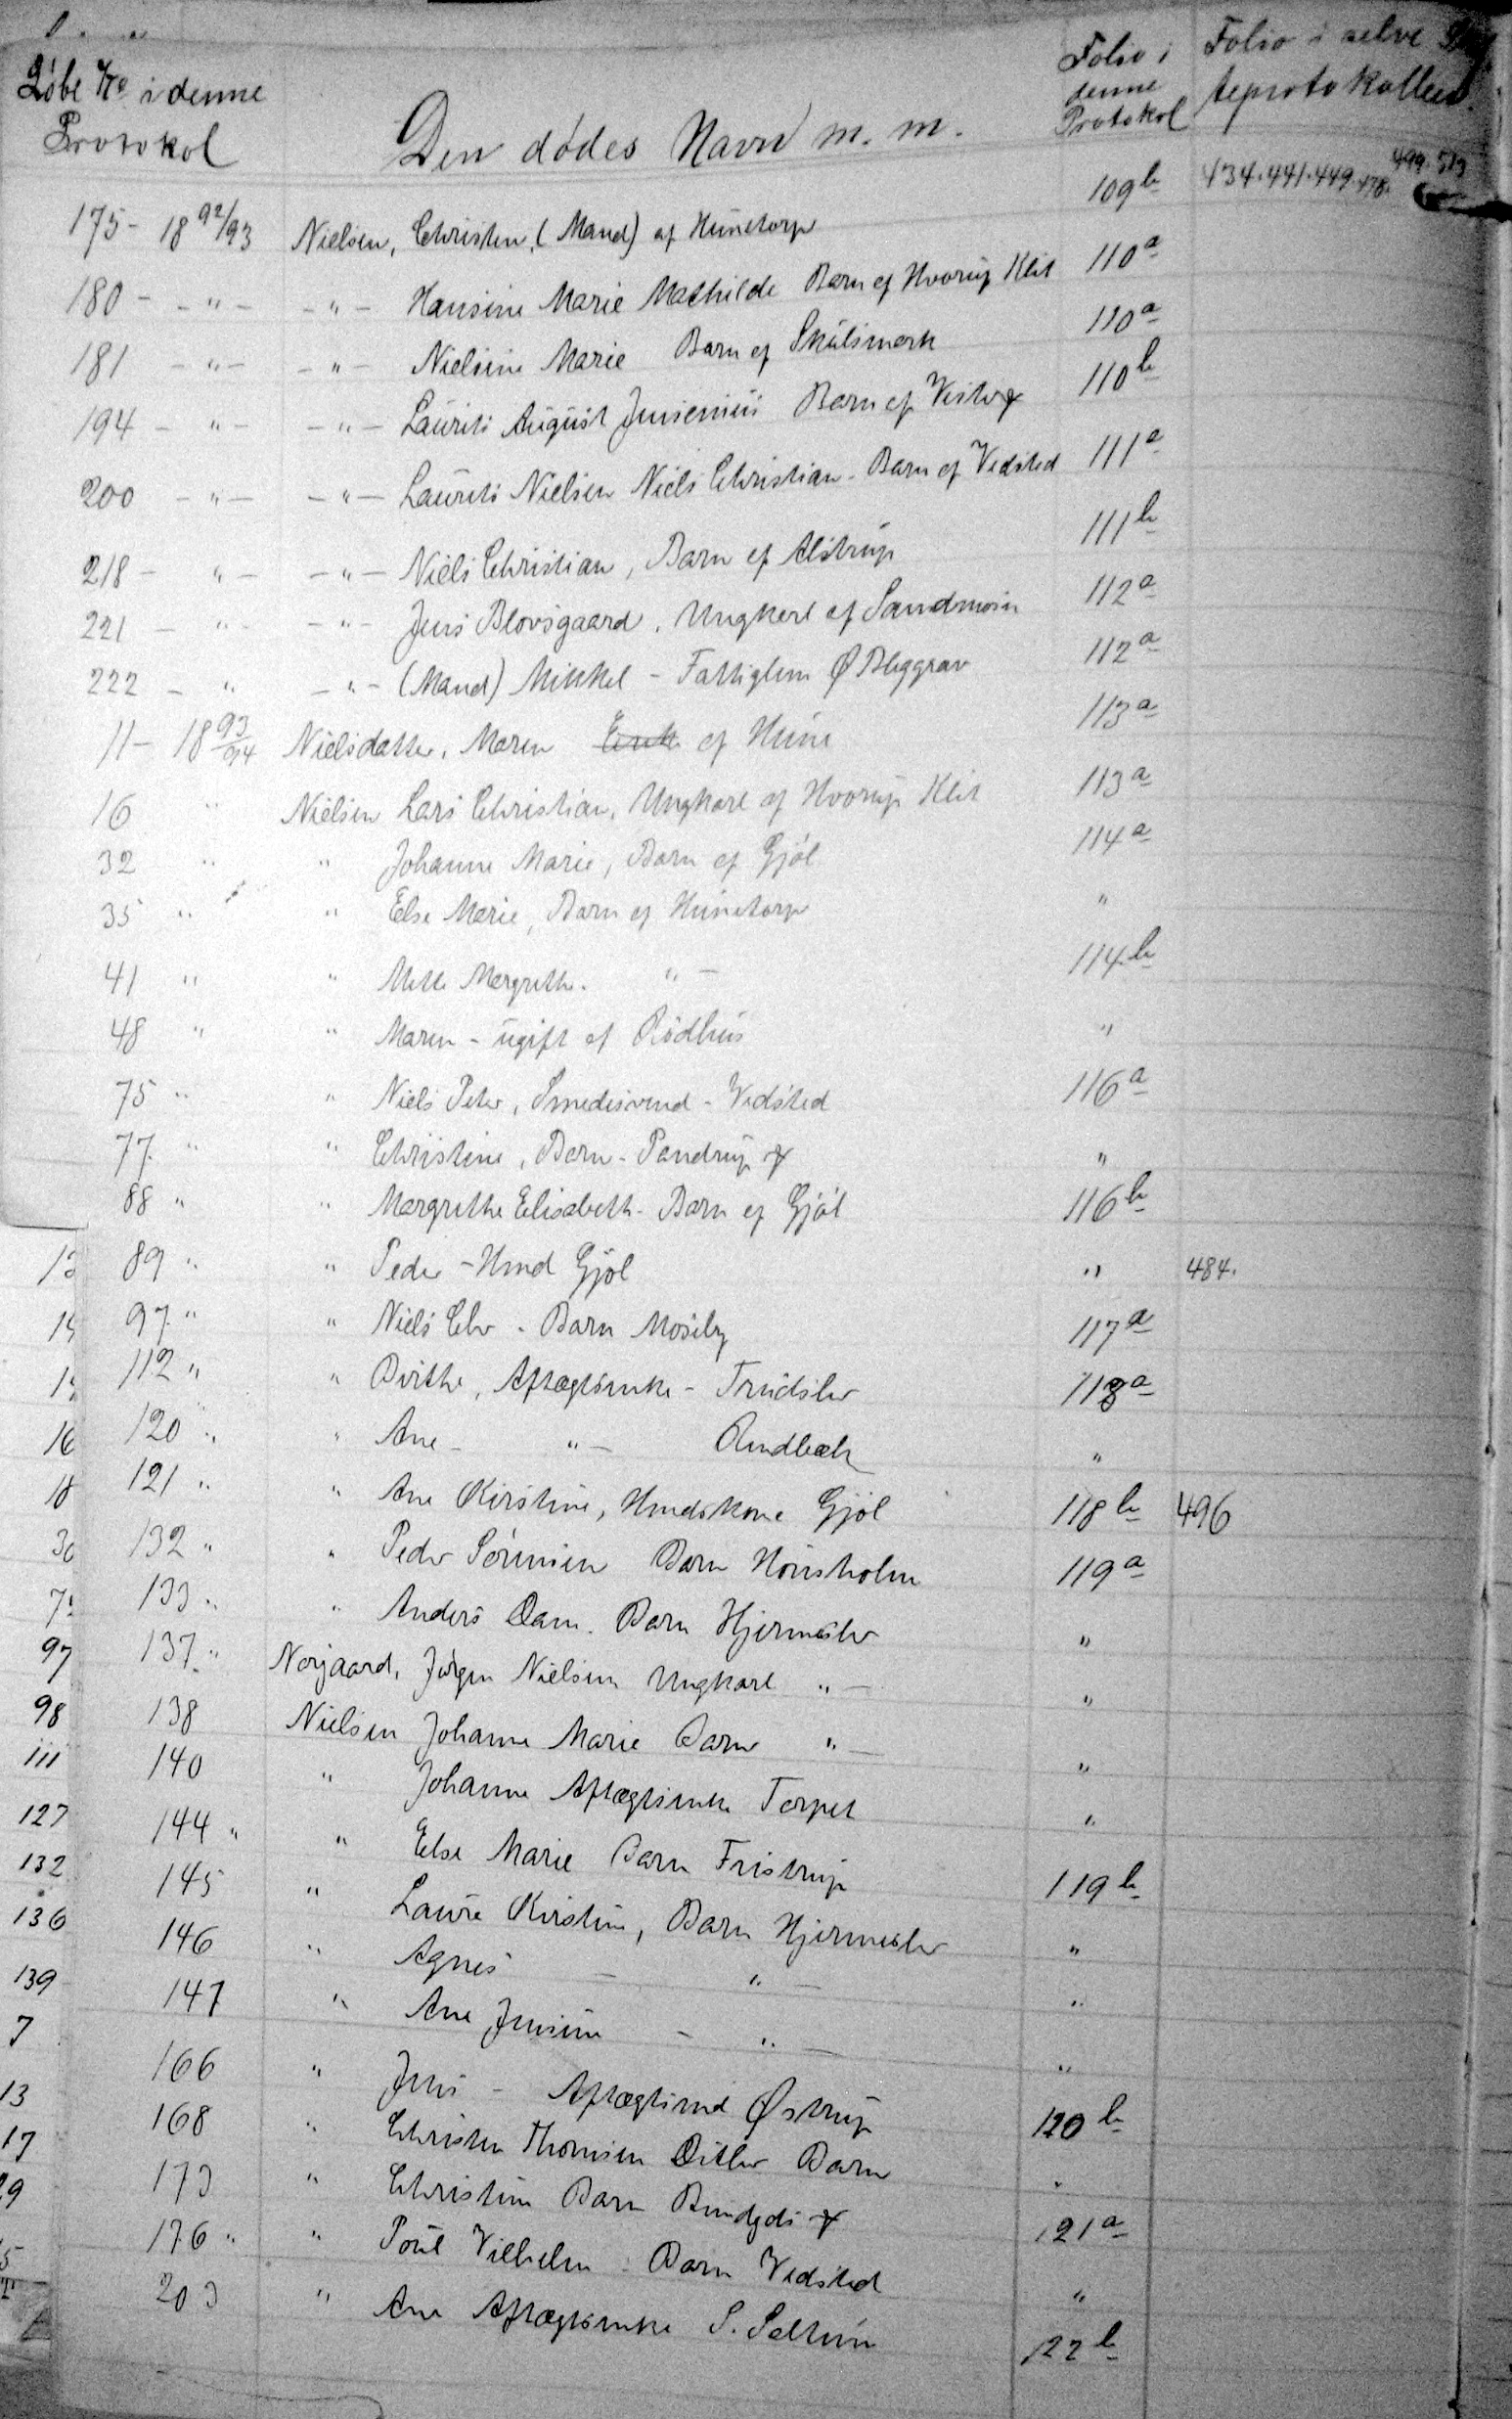 Løbe No i denne Protokol | Den dødes Navn m. m. | Folio i denne Protokol | Folio i selve teprotokollen
175 - 18 92/93 Nielsen, Christen, (Mand) af Hunetorp 109b 434.441.449.478. 499.513
180 - " - - " - Hansine Marie Mathilde Barn af Hvorup Klit 110a
181 - " - - " - Nielsine Marie Barn af Skulsmark 110a
194 - " - - " - Laurits August Jensenius Barn af 110b
200 - " - - " - Laurits Nielsen Niels Christian - Barn af Vedsted 111a
218 - " - - " - Niels Christian, Barn af Alstrup 111b
221 - " - - " - Jens Blovsgaard, Ungkarl af Sandmosen 112a
222 - " - " - (Mand) Mikkel - Fattiglem Ø Bleggrav 112a
11 - 18 93/94 Nielsdatter, Maren Enke af Hune 113a
16 " Nielsen Lars Christian, Ungkarl af Hvorup Klit 113a
32 " " Johanne Marie, Barn af Gjøl 114a
35 " " Else Marie, Barn af Hunetorp "
41 " " Mette Margrethe. " - 114b
48 " " Maren - ugift af Rødhus "
75 " " Niels Peter, Smedesvend - Vedsted 116a
77 " " Christine, Barn - Pandrup "
88 " " Margrethe Elisabeth - Barn af Gjøl 116b
89 " " Peder - Hmd Gjøl " 484.
97 " " Niels Chr - Barn Moseby 117a
112 " " Birthe, Aftægtsenke - Trudslev 118a
16 120 " " Ane - " - Rendbæk "
18 121 " " Ane Kirstine, Hmdskone Gjøl 118b 496
30 132 " " Peder Sørensen Barn Hønsholm 119a
133 " " Anders Dam. Barn Hjermeslev "
97 137 " Norjaard, Jørgen Nielsen Ungkarl " - "
98 138 Nielsen Johanne Marie Barn " - "
111 140 " Johanne Aftægtsenke Torpet "
127 144 " " Else Marie Barn Fristrup 119b
132 145 " Laura Kirstine, Barn Hjermeslev "
136 146 " Agnes - " - "
139 147 " Ane Jensine - " - "
7 166 " Jens - Aftægtsmd Østrup 120b
13 168 " Christen Thomsen Ditlev Barn "
17 173 " Christine Barn 121a
29 176 " " Poul Vilhelm - Barn Vedsted "
203 " Ane Aftægtsenke S. Saltum 122b